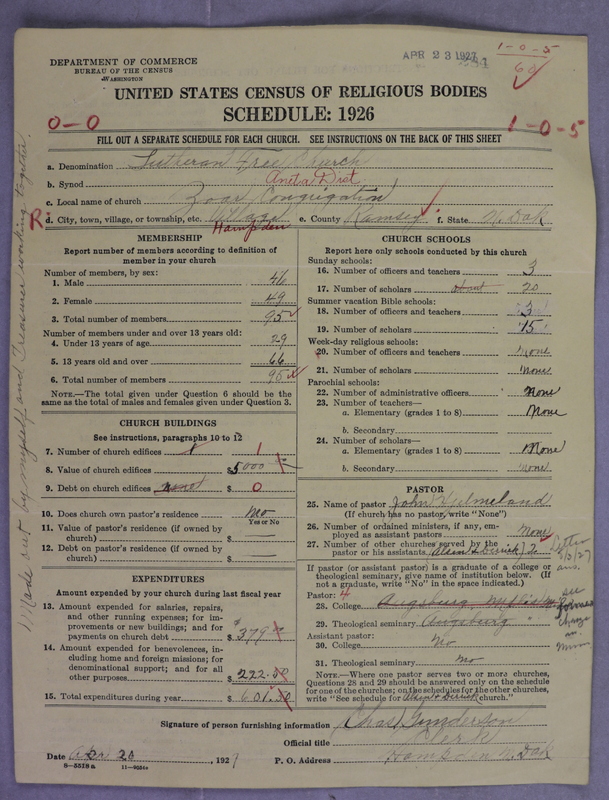 DEPARTMENT OF COMMERCE
BUREAU OF THE CENSUS
WASHINGTON
APR 23 1927
1-0-5
60
UNITED STATES CENSUS OF RELIGIOUS BODIES
SCHEDULE: 1926
0-0
1-0-5
FILL OUT A SEPARATE SCHEDULE FOR EACH CHURCH. SEE INSTRUCTIONS ON THE BACK OF THIS SHEET
a. Denomination Lutheran Free Church
b. Synod Aneta Dist
c. Local name of church Zoar Congregation
R d. City, town, village, or township, etc. Village Hampden e. County Ramsey f. State N. Dak
MEMBERSHIP
Report number of members according to definition of member in your church
Number of members, by sex:
1. Male 46
2. Female 49
3. Total number of members 95
Number of members under and over 13 years old:
4. Under 13 years of age 29
5. 13 years old and over 66
6. Total number of members 95
NOTE.—The total given under Question 6 should be the same as the total of males and females given under Question 3.
CHURCH BUILDINGS
See instructions, paragraphs 10 to 12
7. Number of church edifices 1 1
8. Value of church edifices $5000
9. Debt on church edifices none $ 0
10. Does church own pastor's residence? No
Yes or No
11. Value of pastor's residence (if owned by church) $ —
12. Debt on pastor's residence (if owned by church) $ —
EXPENDITURES
Amount expended by your church during last fiscal year
13. Amount expended for salaries, repairs, and other running expenses; for improvements or new buildings; and for payments on church debt $ 379
14. Amount expended for benevolences, including home and foreign missions; for denominational support; and for all other purposes $ 222.50
15. Total expenditures during year $ 601.50
CHURCH SCHOOLS
Report here only schools conducted by this church
Sunday schools:
16. Number of officers and teachers 3
17. Number of scholars about 20
Summer vacation Bible schools:
18. Number of officers and teachers 3
19. Number of scholars 15
Week-day religious schools:
20. Number of officers and teachers None
21. Number of scholars None
Parochial schools:
22. Number of administrative officers None
23. Number of teachers—
a. Elementary (grades 1 to 8) None
b. Secondary
24. Number of scholars—
a. Elementary (grades 1 to 8) None
b. Secondary None
PASTOR
25. Name of pastor John Hjelmeland
(If church has no pastor, write "None")
26. Number of ordained ministers, if any, employed as assistant pastors None
27. Number of other churches served by the pastor or his assistants 2
If pastor (or assistant pastor) is a graduate of a college or theological seminary, give name of institution below. (If not a graduate, write "No" in the space indicated.)
Pastor: 4
28. College Augsburg
29. Theological seminary Augsburg "
Assistant pastor:
30. College No
31. Theological seminary No
NOTE.—Where one pastor serves two or more churches, Questions 28 and 29 should be answered only on the schedule for one of the churches; on the schedules for the other churches, write "See schedule for church."
Signature of person furnishing information Chas Gunderson
Official title Clerk
Date Apr 20, 1927 P. O. Address Hampden N. Dak
8—5518 a
Made out by myself and Treasurer working together.